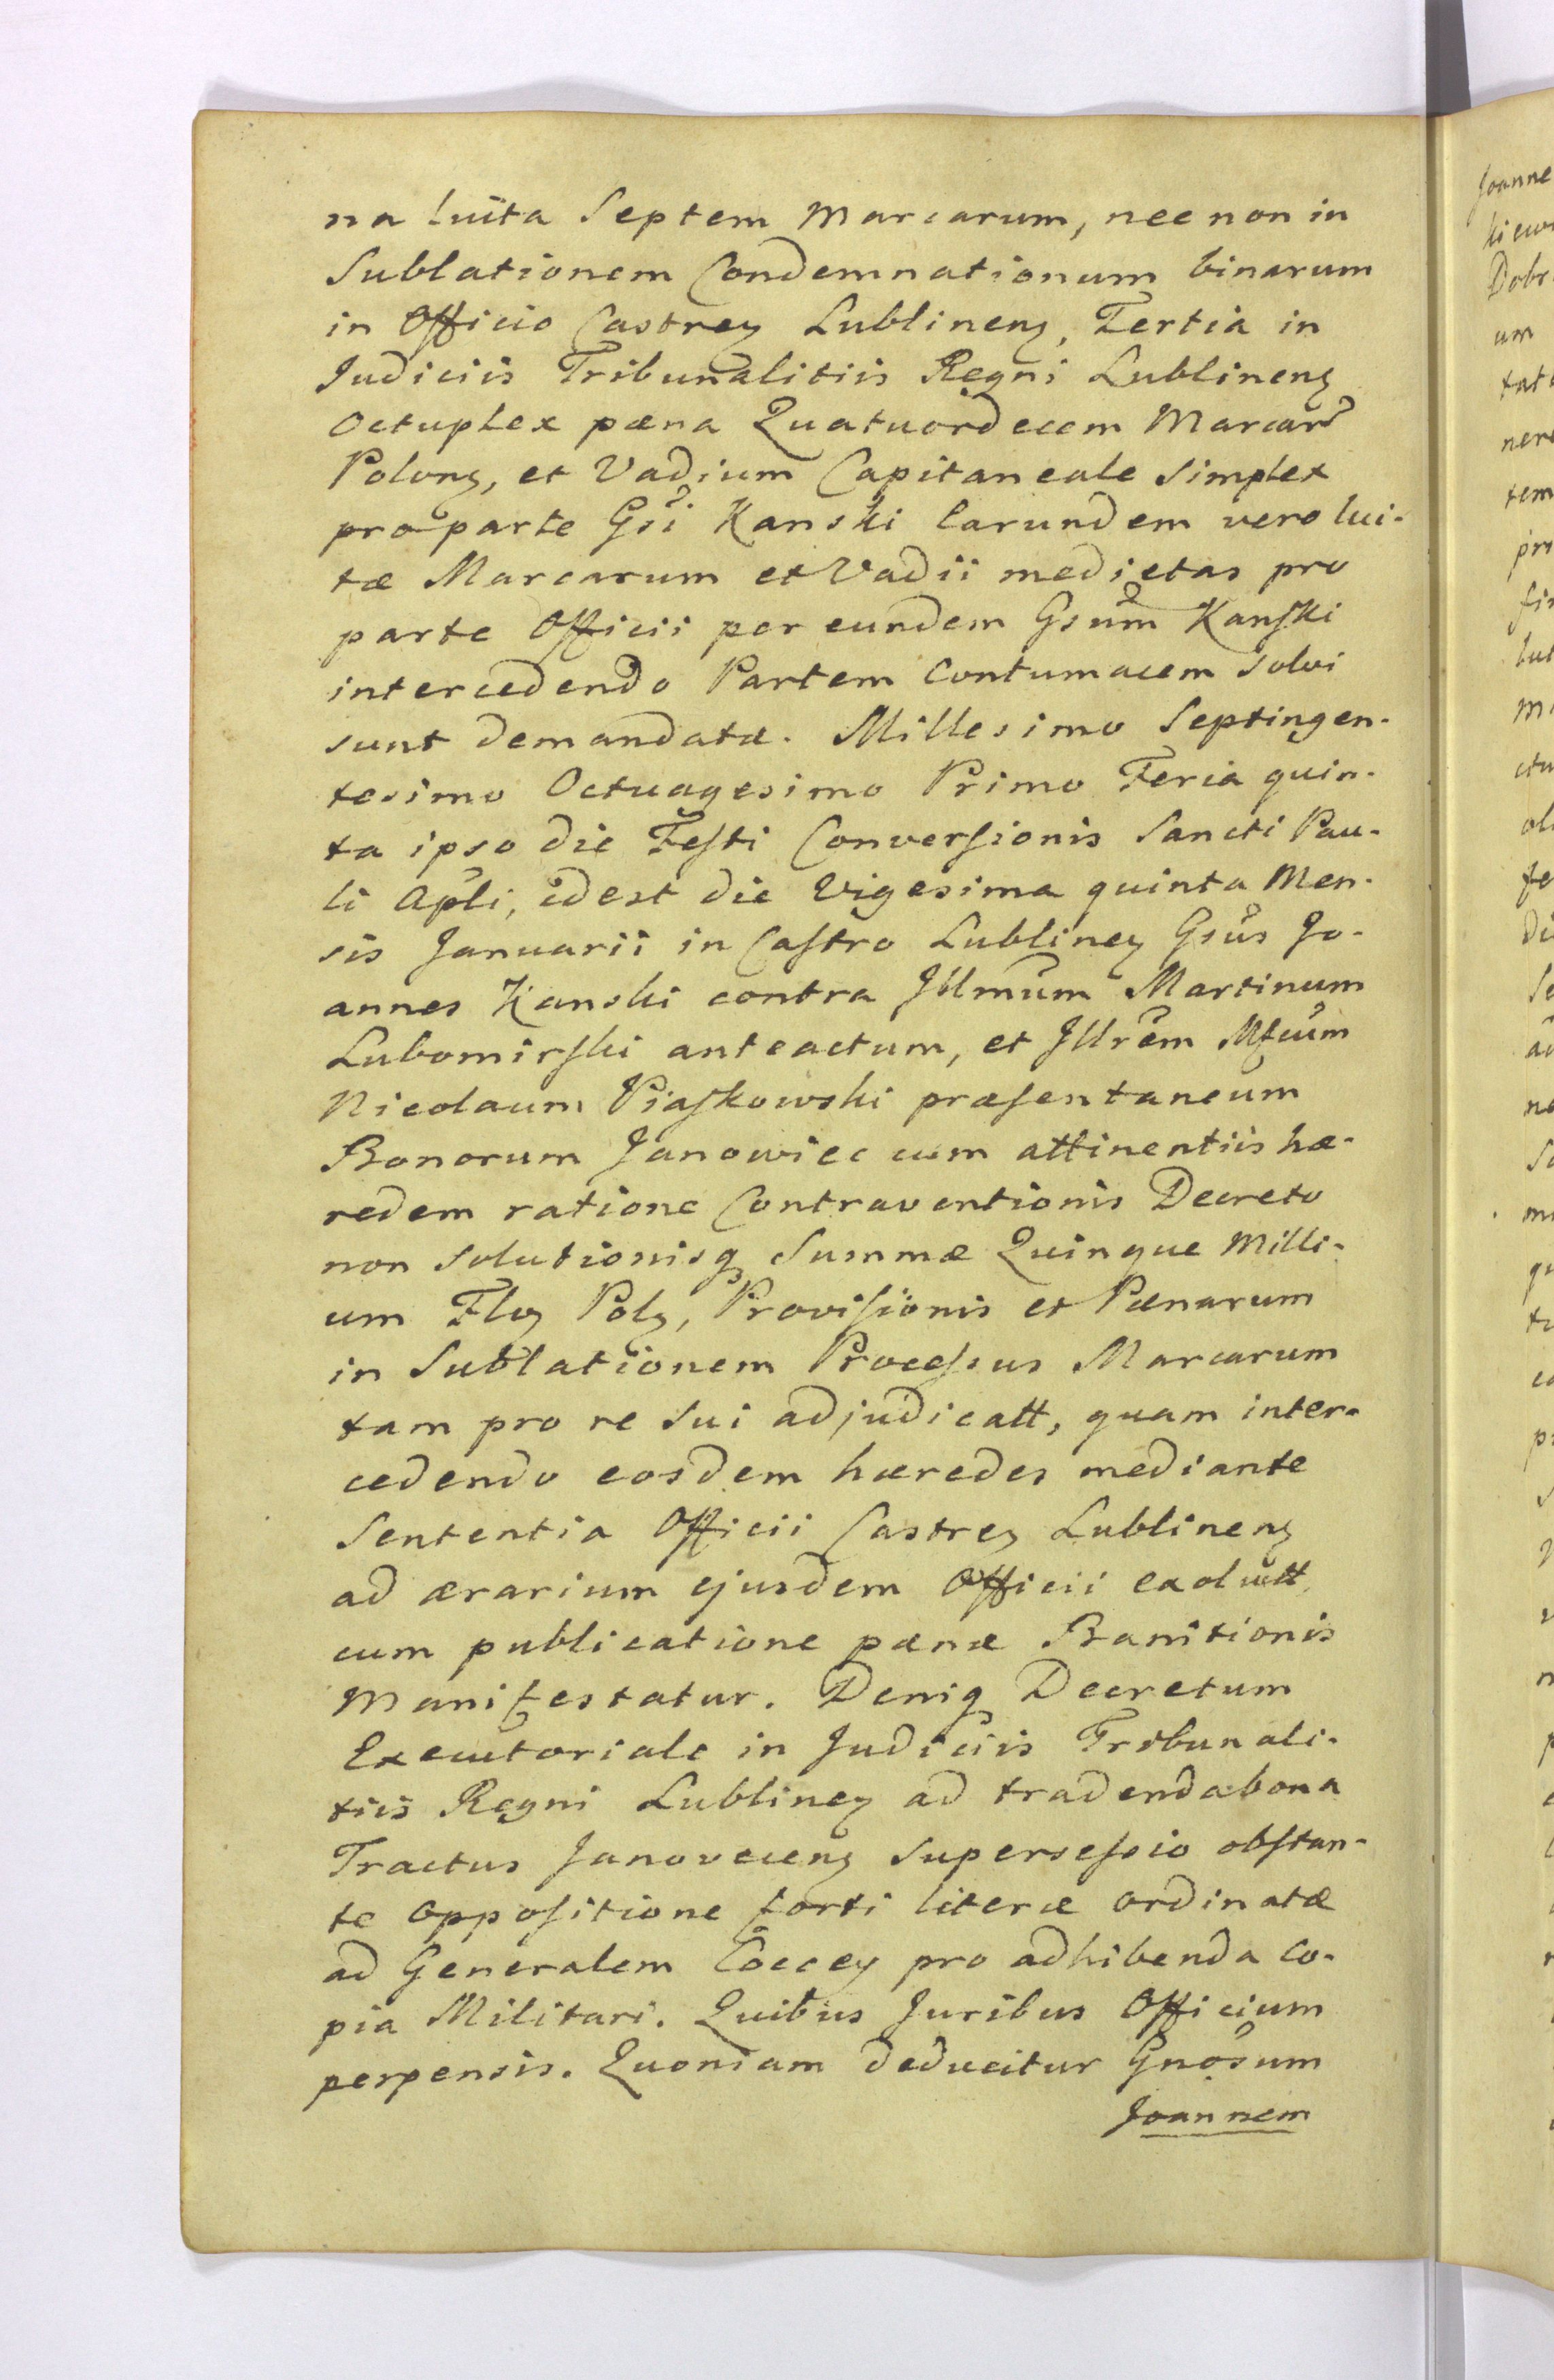 na luita Septem Marcarum, nec non in
Sublationem Condemnationum binarum
in Officio Castreƺ Lublinenƺ, Tertia in
Judiciis Tribunalitiis Regni Lublinenƺ
Octuplex pæna Quatuordecem Marcar̃
Polonƺ, et Vadium Capitaneale Simplex
pro parte Gsi Kanski Earundem vero lui-
tæ Marcarum et Vadii medietas pro
parte Officii per eundem Gsum Kanſki
intercedendo Partem Contumacem Solvi
sunt demandatæ. Millesimo Septingen-
tesimo Octuagesimo Primo Feria quin-
ta ipso die Feſti Converſionis Sancti Pau-
li Apli, idest die Vigesima quinta Men-
sis Januarii in Caſtro Lublineƺ Gsus Jo-
annes Kanski contra Jllmum Martinum
Lubomirſki anteactum, et Jllrem Mfcum
Nicolaum Piaſkowski præſentaneum
Bonorum Janowiec cum attinentiis hæ-
redem ratione Contraventionis Decreto
non Solutionisqꝫ Summæ Quinque Milli-
um Floƺ Polƺ, Proviſionis et Pænarum
in Sublationem Proceſsus Marcarum
tam pro re Sui adjudicatt, quam inter-
cedendo eosdem hæredes mediante
Sententia Officii Castreƺ Lublinenƺ
ad ærarium ejusdem Officii exoluitt
cum publicatione pænæ Banitionis
Manifestatur. Deniqꝫ Decretum
Executoriale in Judiciis Tribunali-
tiis Regni Lublineƺ ad tradenda bona
Tractus Janovecenƺ Superseſsio obſtan-
te oppoſitione forti literæ ordinatæ
ad Generalem Coeceƺ pro adhibenda Co-
pia Militari. Quibus Juribus Officium
perpensis. Quoniam deducitur Gnosum
Joannem
Joanne
Dobr
um
nere
tem